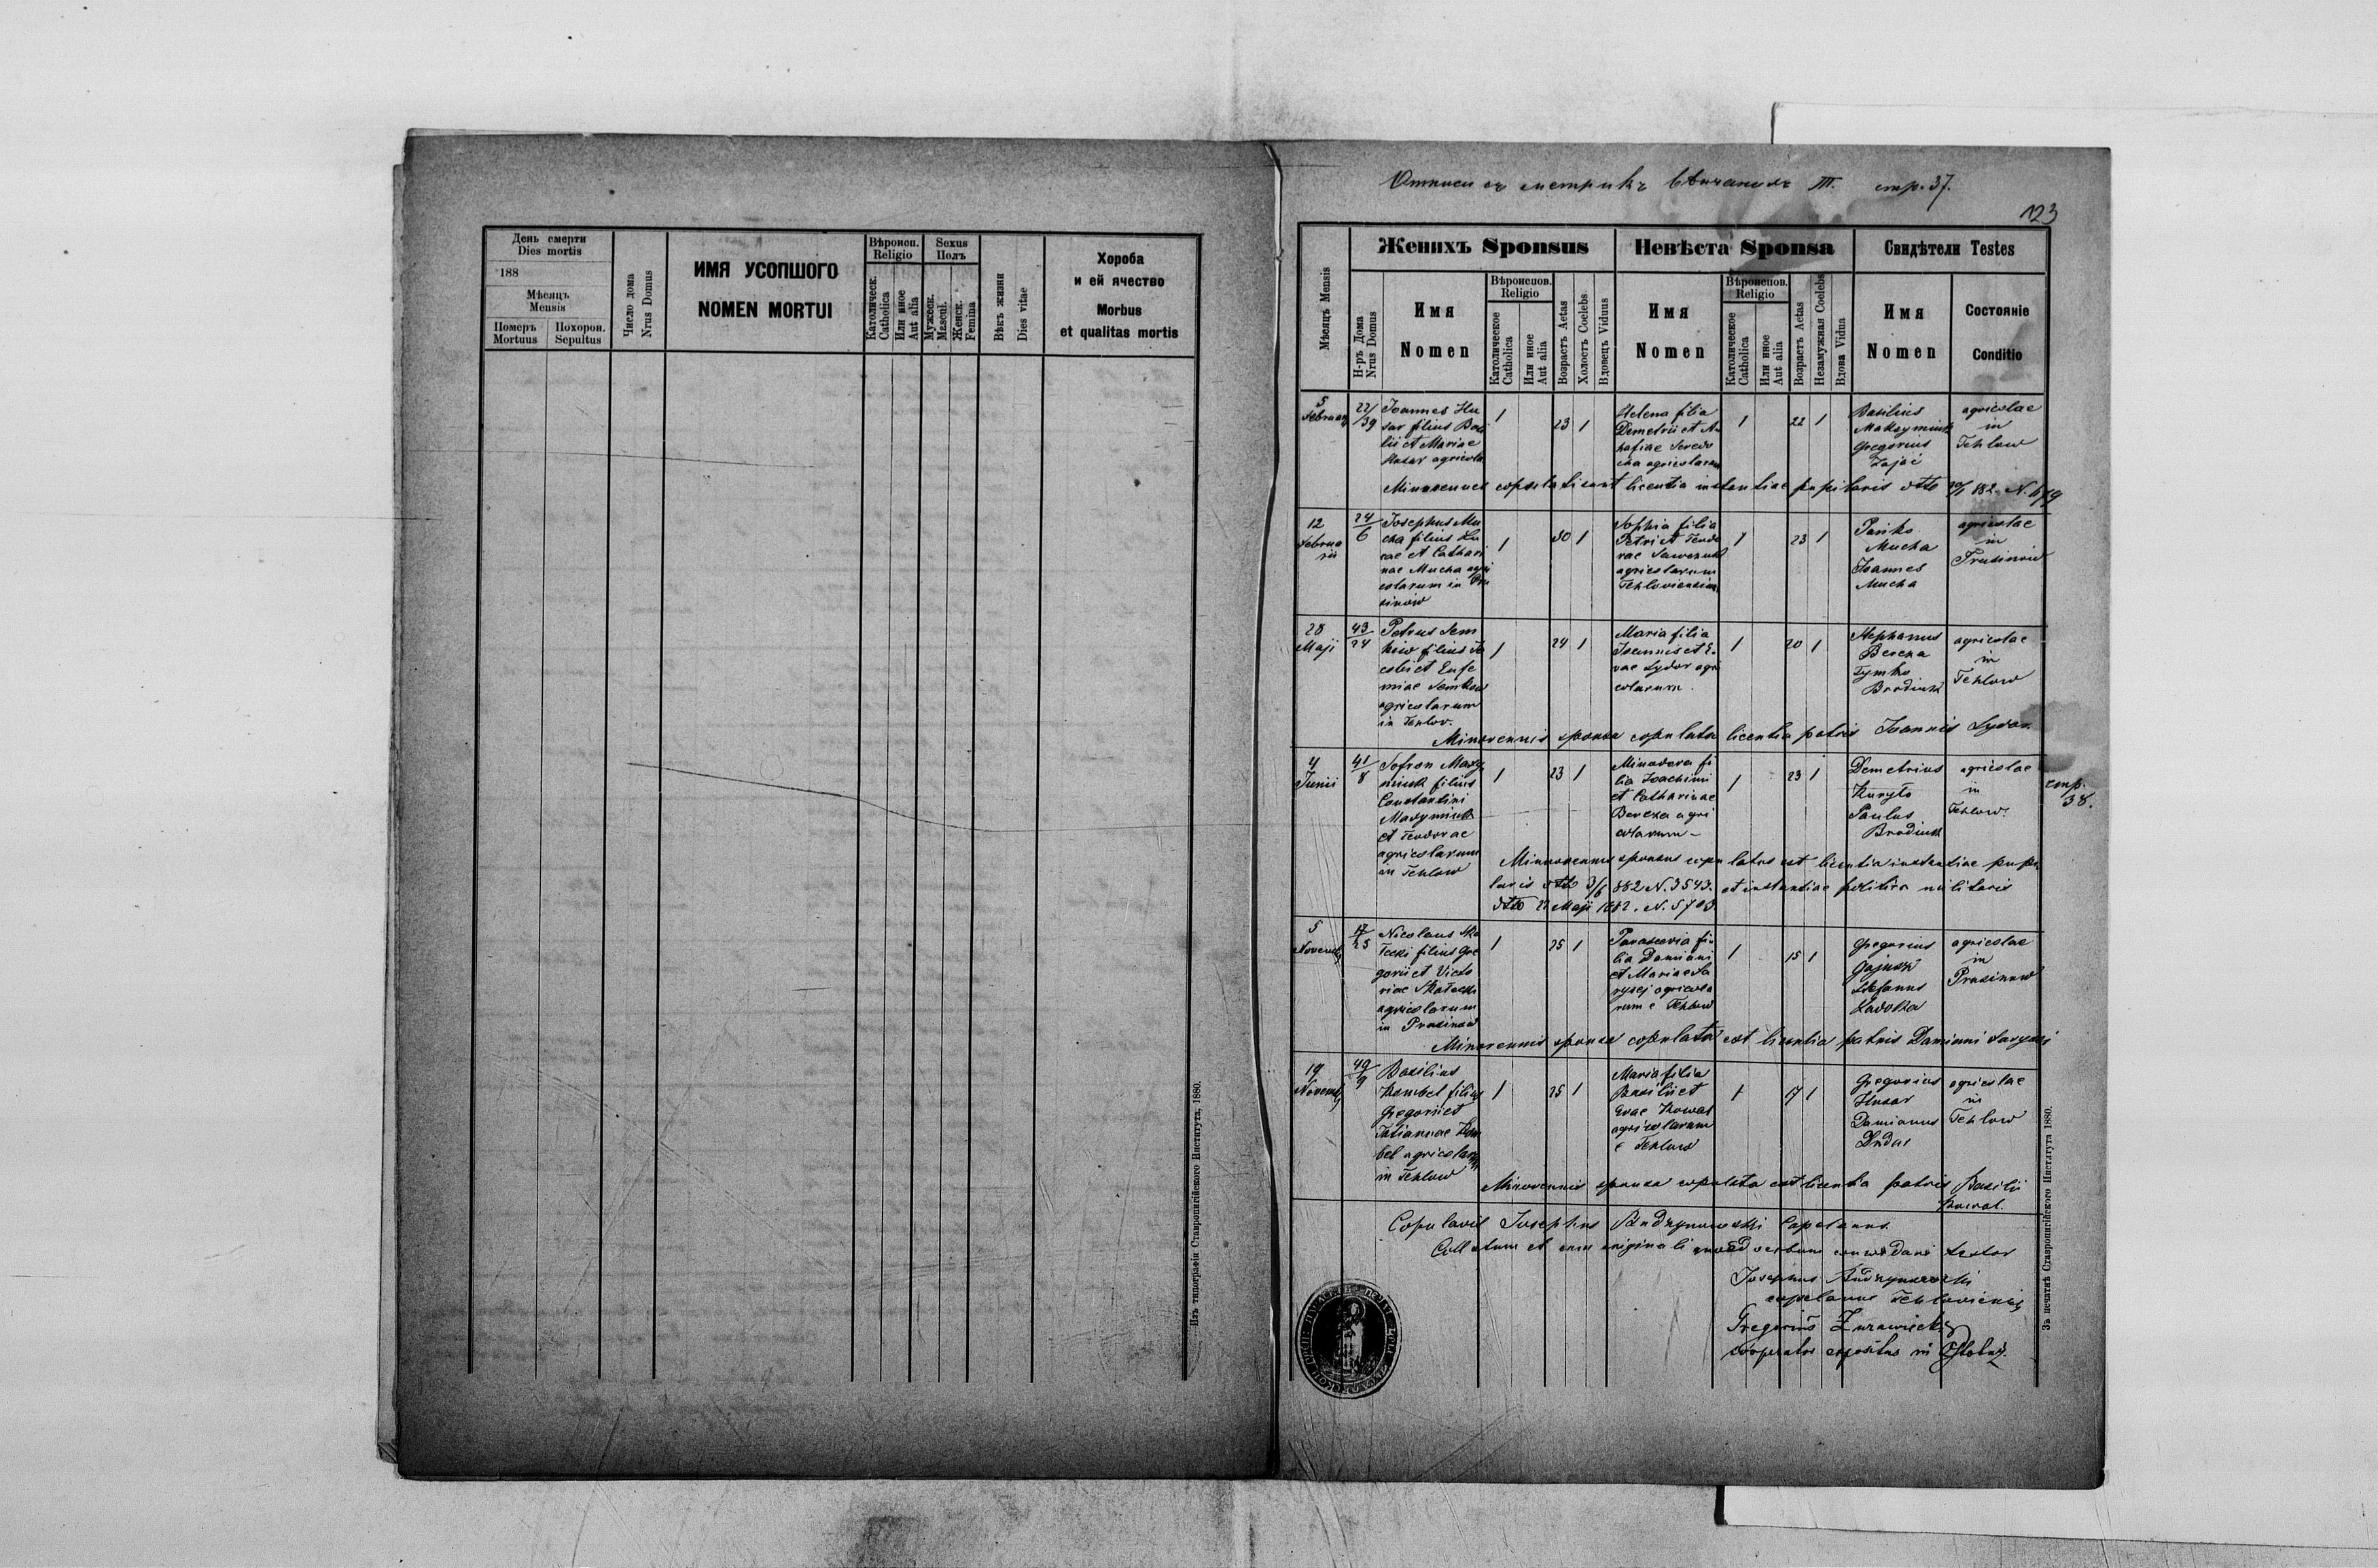 День смерти
Dies mortis
188
Мѣсяцъ
Mensis
Померъ
Mortuus
Похорон.
Sepultus
Число дома
Nrus Domus
ИМЯ УСОПШОГО
NOMEN MORTUI
Вѣроисп.
Religio
Католическ.
Catholica
Или иное
Aut alia
Sexus
Полъ
Мужеск.
Mascul.
Женск.
Femina
Вѣкъ жизни
Dies vitae
Хороба
и ей ячество
Morbus
et qualitas mortis
Изъ типографіи Ставропигійского Института, 1880.
стр. 37.
123
Мѣсяцъ Mensis
Женихъ Sponsus
Н-ръ Дома
Nrus Domus
Имя
Nomen
Вѣроиспов.
Religio
Католическое
Catholica
Или иное
Aut alia
Возрастъ Aetas
Холостъ Coelebs
Вдовецъ Viduus
Невѣста Sponsa
Имя
Nomen
Вѣроиспов.
Religio
Католическое
Catholica
Или иное
Aut alia
Возрастъ Aetas
Незамужная Coelebs
Вдова Vidua
Свидѣтели Testes
Имя
Nomen
Состояніе
Conditio
5
Februarij
22/39
Joannes Hu
sar filius Basi
lii et Mariae
Husar agricola
1
23 1
Helena filia
Demetrii et A
agricolarum
1
22 1
Basilius
Maksymiuk
Gregorius
Zając
agricolae
in
Tehlow
Minorennes copulati sunt licentia instantiae pupilaris dtto 882 N. 479
12
Februa
rii
24/6
Josephus Mu
cha filius Lu
cae et Cathari
nae Mucha agri
colarum in Pru
sinow
1
30 1
Sophia filia
Petri et Teodo
rae Sawczuk
agricolarum
Tehloviensium
1
23 1
Pańko
Mucha
Joannes
Mucha
agricolae
in
Prusinow
28
Maji
43/24
Petrus Sem
kow filius Ja
cobi et Eufe
miae Semkow
agricolarum
in Tehlow.
1
24 1
Maria filia
Joannis et E
vae Sydor agri
colarum.
1
20 1
Stephanus
Bereza
Tymko
Brodiuk
agricolae
in
Tehlow
Minorennis sponsa copulata licentia patris Joannis Sydor.
4
Junii
41/8
Sofron Maxy
miuk filius
Constantini
Maxymiuk
et Teodorae
agricolarum
in Tehlow
1
23 1
Minodora fi
lia Joachimi
et Catharinae
Bereza agri
colarum -
1
23 1
Demetrius
Kuryło
Paulus
Brodiuk
agricolae
in
Tehlow.
стр.
38.
Minorennis sponsus copulatus est licentia instantiae pupi
laris dtto 3/6 882 N. 3543. et instantiae politico militaris
dtto 22 Maji 1882. N. 5703
5
Novembr
17/25
Nicolaus Ska
łecki filius Gre
gorii et Victo
riae Skałecki
agricolarum
in Prusinow
1
25 1
Parascevia fi
lia Damiani
et Mariae Sa
ryej agricola
rum e Tehlow
1
15 1
Gregorius
Gajuski
Stefanus
Zadożka
agricolae
in
Prusinow
Minorennis sponsa copulata est licentia patris Damiani
19
Novembr
49/9
Basilius
Kombel filius
Gregorii et
Tatiannae Kom
bel agricolarum
in Tehlow
1
25 1
Maria filia
Basilii et
Evae Kowal
agricolarum
e Tehlow
1
17 1
Gregorius
Husar
Damianus
Dudar
agricolae
in
Tehlow
Minorennis sponsa copulata est licentia patris Basilii
Kowal.
Copulavit Josephus Budzynowski Capelanus.
cum originali quoad verbum concordare testor
Josephus Budzynowski
capelanus Tehloviensis
Gregorius Żurawiecki
cooperator expositus in
Зъ печатнѣ Ставропигійского Института 1880.